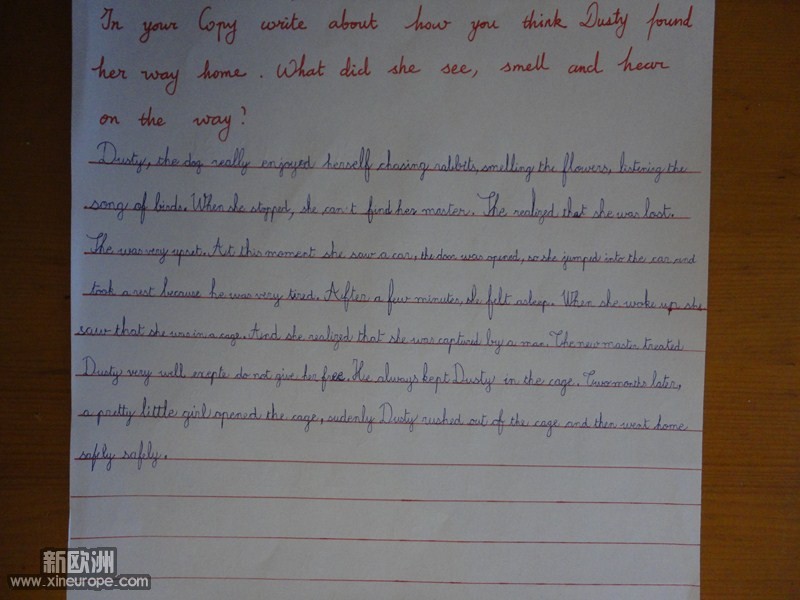 In your Copy write about how you think Dusty found
her way home. What did she see, smell and hear
on the way?
Dusty, the dog really enjoyed herself chasing rabbits, smelling the flowers, listening the
song of birds. When she stopped, she can't find her master. She realized that she was lost.
She was very upset. At this moment she saw a car, the door was opened, so she jumped into the car and
took a rest because he was very tired. After a few minutes, she felt asleep. When she woke up, she
saw that she was in a cage. And she realized that she was captured by a man. The new master treated
Dusty very will exepte do not give her free. He always kept Dusty in the cage. Two months later,
a pretty little girl opened the cage, sudenly Dusty rushed out of the cage and then went home
safly safly.
新欧洲
www.xineurope.com